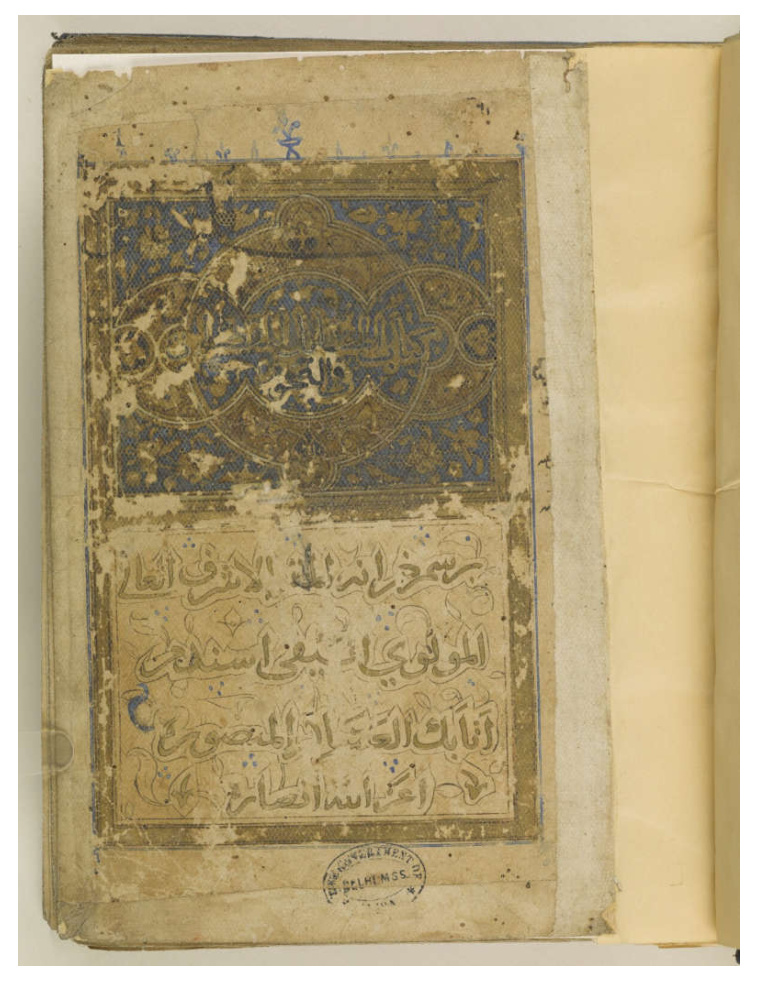 كتاب
في النحو
برسم خزانة المقر الاشرف العالي
المولوي السيفي اسندمر
أتابك العساكر المنصورة
أعز الله أنصاره
THE GOVERNMENT OF
DELHI MSS.